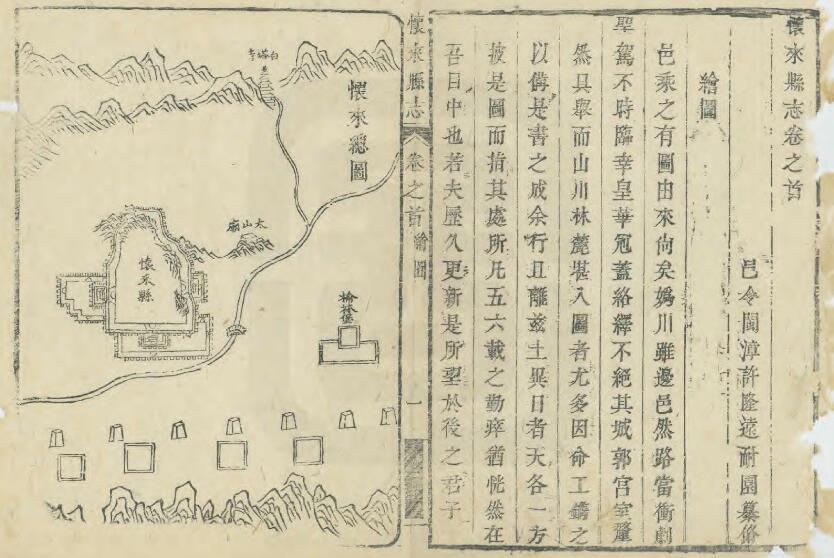 懷來縣志卷之首
邑令閩漳許隆遠耐園纂脩
繪圖
邑乘之有圖由來尚矣媯川雖邊邑然路當衝劇
聖駕不時臨幸皇華冠蓋絡繹不絕其城郭宮室釐
然具舉而山川林麓堪入圖者尤多因命工鐫之
以備是書之成余行且離兹土異日者天各一方
披是圖而指其處所凡五六載之勤瘁猶恍然在
吾目中也若夫歷久更新是所望於後之君子
懷來縣志
卷之首
繪圖
一
懷來總圖
白塔寺
太山廟
懷來縣
榆林堡